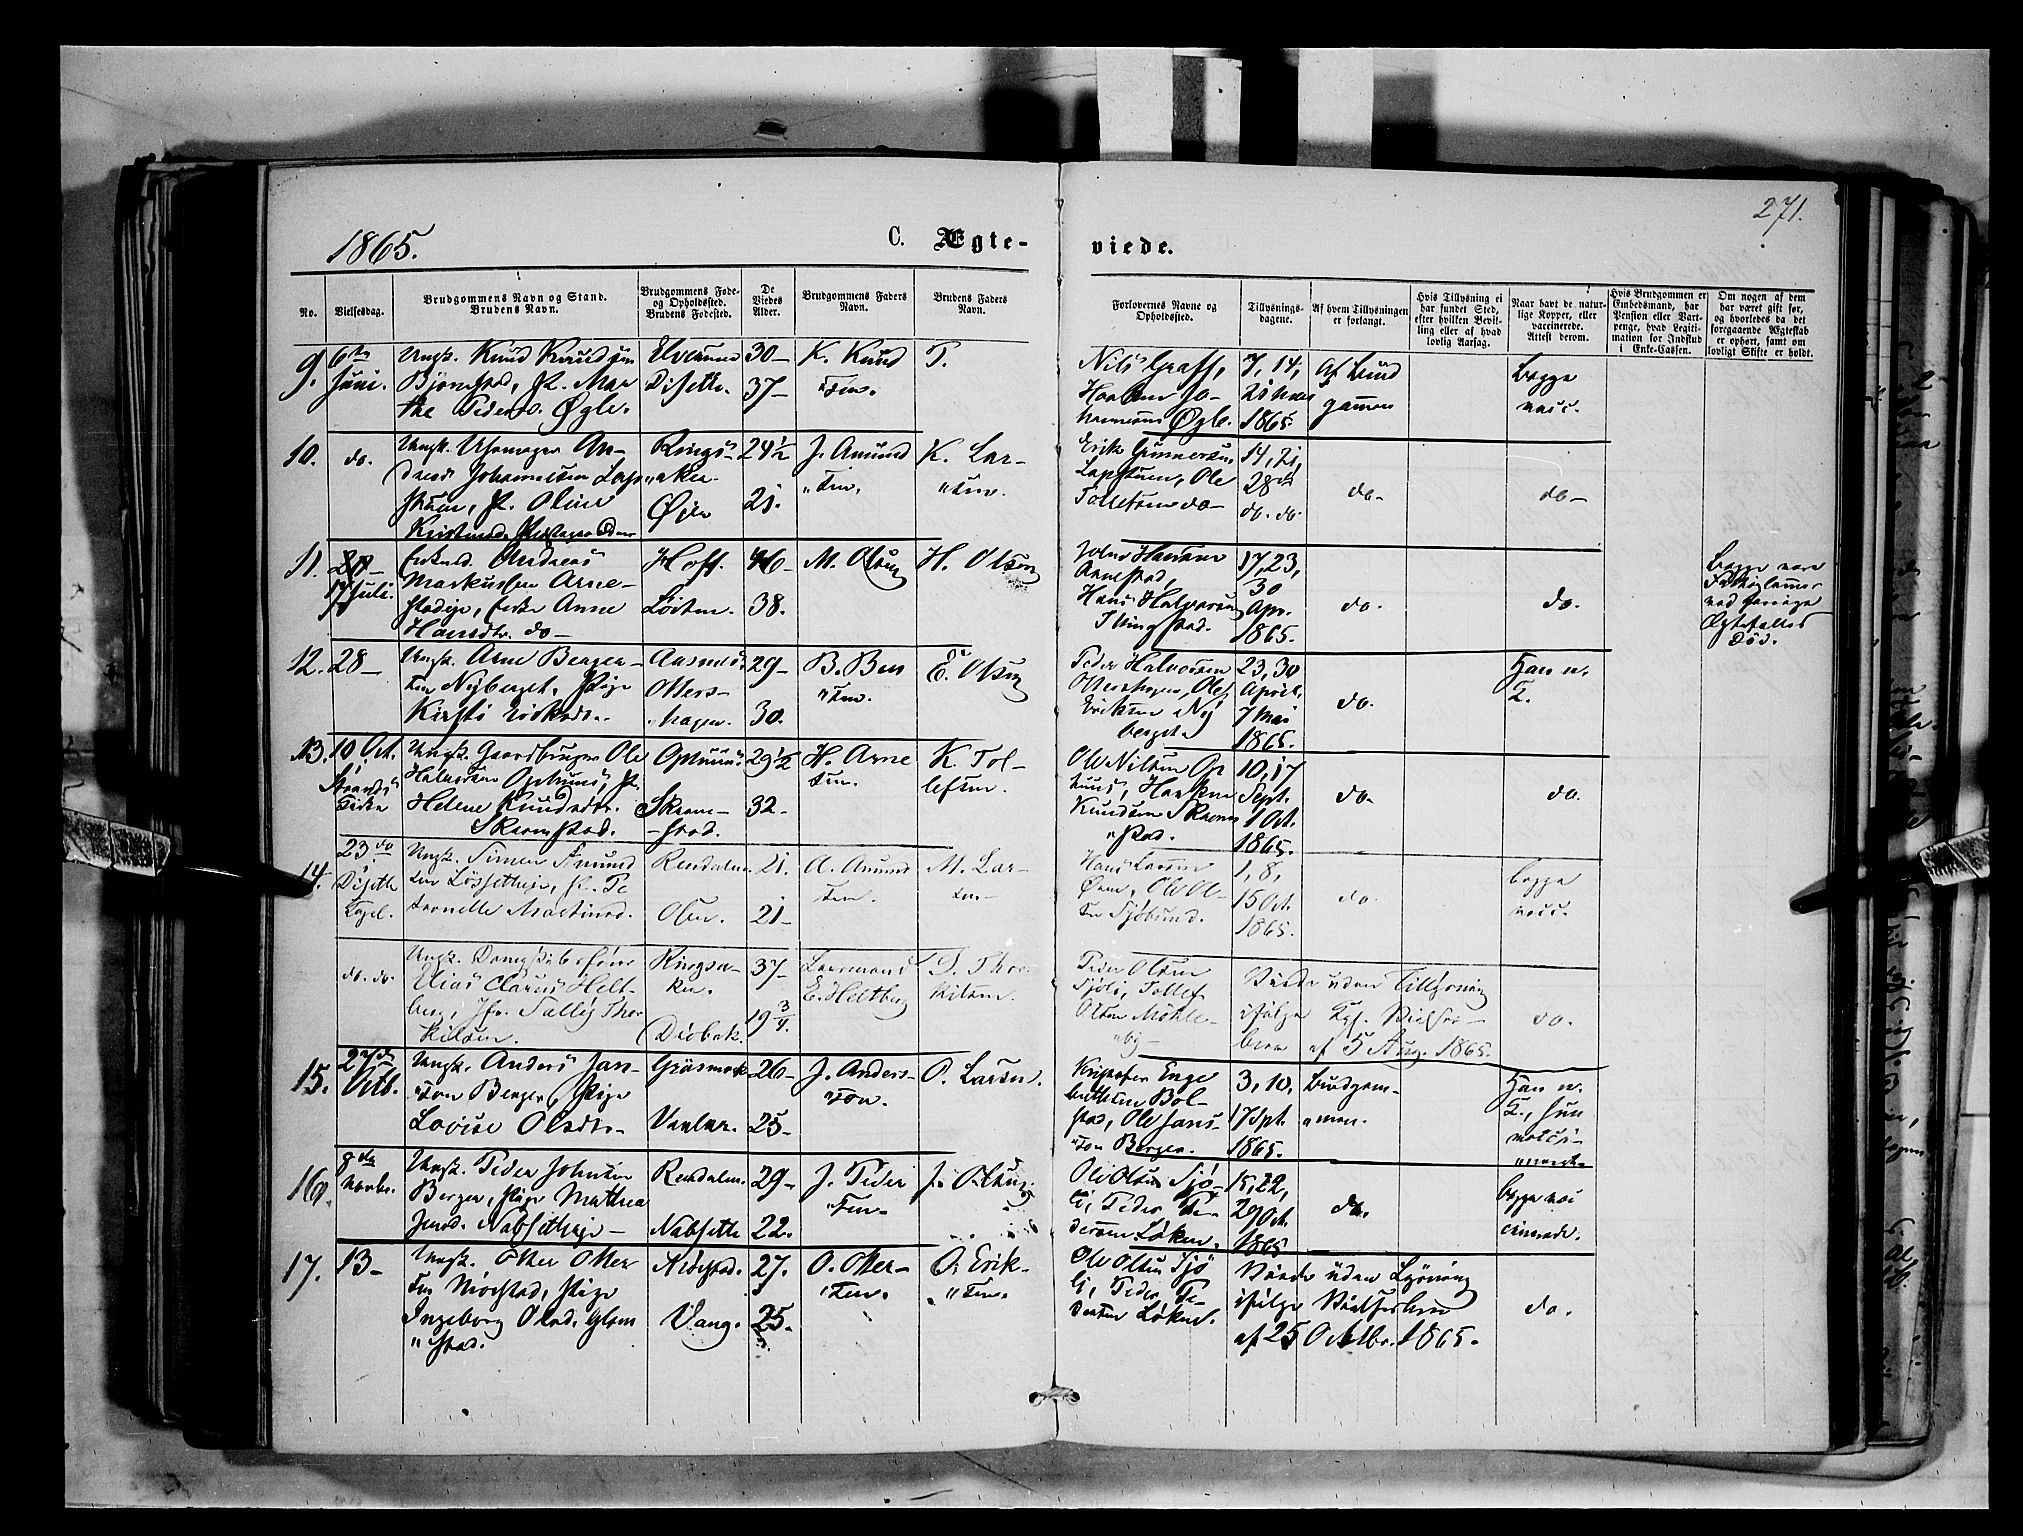 271.
1865.
C. Ægte-
viede.
No.
Vielsesdag.
Brudgommens Navn og Stand.
Brudens Navn.
Brudgommens Føde-
og Opholdssted.
Brudens Fødested.
De
Viedes
Alder.
Brudgommens Faders
Navn.
Brudens Faders
Navn.
Forlovernes Navne og
Opholdssted.
Tillysnings-
dagene.
Af hvem Tillysningen
er forlangt.
Hvis Tillysning ei
har fundet Sted,
efter hvilken Bevil-
ling eller af hvad
lovlig Aarsag.
Naar havt de natur-
lige Kopper, eller
vaccinerede.
Attest derom.
Hvis Brudgommen er
Embedsmand, har
Pension eller Vart-
penge, hvad Legiti-
mation for Indskud
i Enke-Cassen.
Om nogen af dem
har været gift før,
og hvorledes da det
foregaaende Ægteskab
er ophørt, samt om
lovligt Skifte er holdt.
9.
6te
Juni.
Ungk. Knud Knudsen
Bjørnstad, P. Mar
the Peders. Øgle.
Elverum
Diseth.
30-
37-
K. Knud
sen.
P.
Nils Graff,
Haaken Jo-
hannesen Øgle.
7, 14,
21 Mai
1865.
Af Brud
gommen
begge
vacc.
10.
do.
Ungk. Uhrmager An-
dreas Johannesen
P. Oline
Rings-
aker.
Øien
24½
21.
J. Amund
"sen.
K. Lar-
"sen.
Erik Gunnersen
Ole
Tollefsen do-
14, 21,
28de
do. do.
do-
do-
11.
17 Juli.
Enkmd. Andreas
Markussen Arne-
stadeje, Enke Anne
Hansdtr. do-
Hoff.
Løiten.
46-
38.
M. Olsen
H. Olsen
Johan Hansen
Arnestad,
Hans Halvorsen
Thingstad.
17, 23,
30
Apr.
1865.
do.
do.
Begge vare
ved forrige
Ægtefælles
Død.
12.
28-
Ungk. Arne Berger-
sen Nyberget, Pige
Kirsti
Aasnes.
Otters-
hagen.
29-
30.
B. Ben
"sen.
E. Olsen
Peder Halvorsen
Ottershagen, Ole
Eriksen Ny
berget.
23, 30
April,
7 Mai
1865.
do.
Han n.
K.
13.
10 Oct.
Strands
Kirke
Ungk. Gaardbruger Ole
Halvorsen Ophuus, P.
Helene Knudsdtr.
Skramstad.
Ophuus
Skram-
-stad.
29½
32-
H. Arne
sen.
K. Tol-
lefsen.
Ole Nilsen Op
huus, Haaken
Knudsen Skram
"stad.
10, 17
Sept.
1 Oct.
1865.
do-
do.
14.
23 do
Diseth
Capel.
Ungk. Simen Amund
sen Løssetheje, P. Pe
tronelle Martinsd.
Rendalen
21.
21-
A. Amund
sen.
M. Lar-
sen-
Hans Larsen
Øien,
1, 8,
15 Oct.
1865.
do.
begge
vacc.
do. do.
Ungk. Dampskibsfører
Elias Clarus Helt-
berg, Jfr. Thor
kilsen.
Ringsa-
ker.
Drøbak.
37-
19¾.
E. Heltberg
Thor
kilsen.
Peder Olsen
Sjøli, Tollef
Olsen
Viede uden Tillysning
ifølge Kgl. Vielses-
brev af 5 Aug. 1865.
do.
15.
27 do
Octb.
Ungk. Anders Jan-
son Berger, Pige
Lovise Olsdtr-
Gräsmark
26-
25-
J. Anders-
son.
O. Larsen.
Kristofer Enge
brettsen Bol-
stad, Ole Jans-
"son Berger.
3, 10,
17 Spt.
1865.
Brudgom-
"men.
Han n.
K., hun
vacci-
"neret-
16.
8de
Novbr.
Ungk. Peder Johnsen
Berger, Pige Mathea
Jensd. Nabsetheje-
Rendalen.
Nabsette
29-
22.
J. Peder
"sen-
J. Olsen
Ole Olsen Sjø-
li, Peder Pe-
dersen Løken.
15, 22,
29 Oct.
1865
do.
begge vac
cinerede.
17.
13-
Ungk. Otter Otter
sen Mørstad, Pige
Ingeborg Olsd. Glom
"stad.
Vang.
27.
25.
O. Otter-
"sen.
O. Erik-
"sen.
Ole Olsen Sjø
li, Peder Pe-
dersen Løken.
Viede uden Lysning
ifølge Vielsesbrev
af 25 Octbr. 1865.
do.